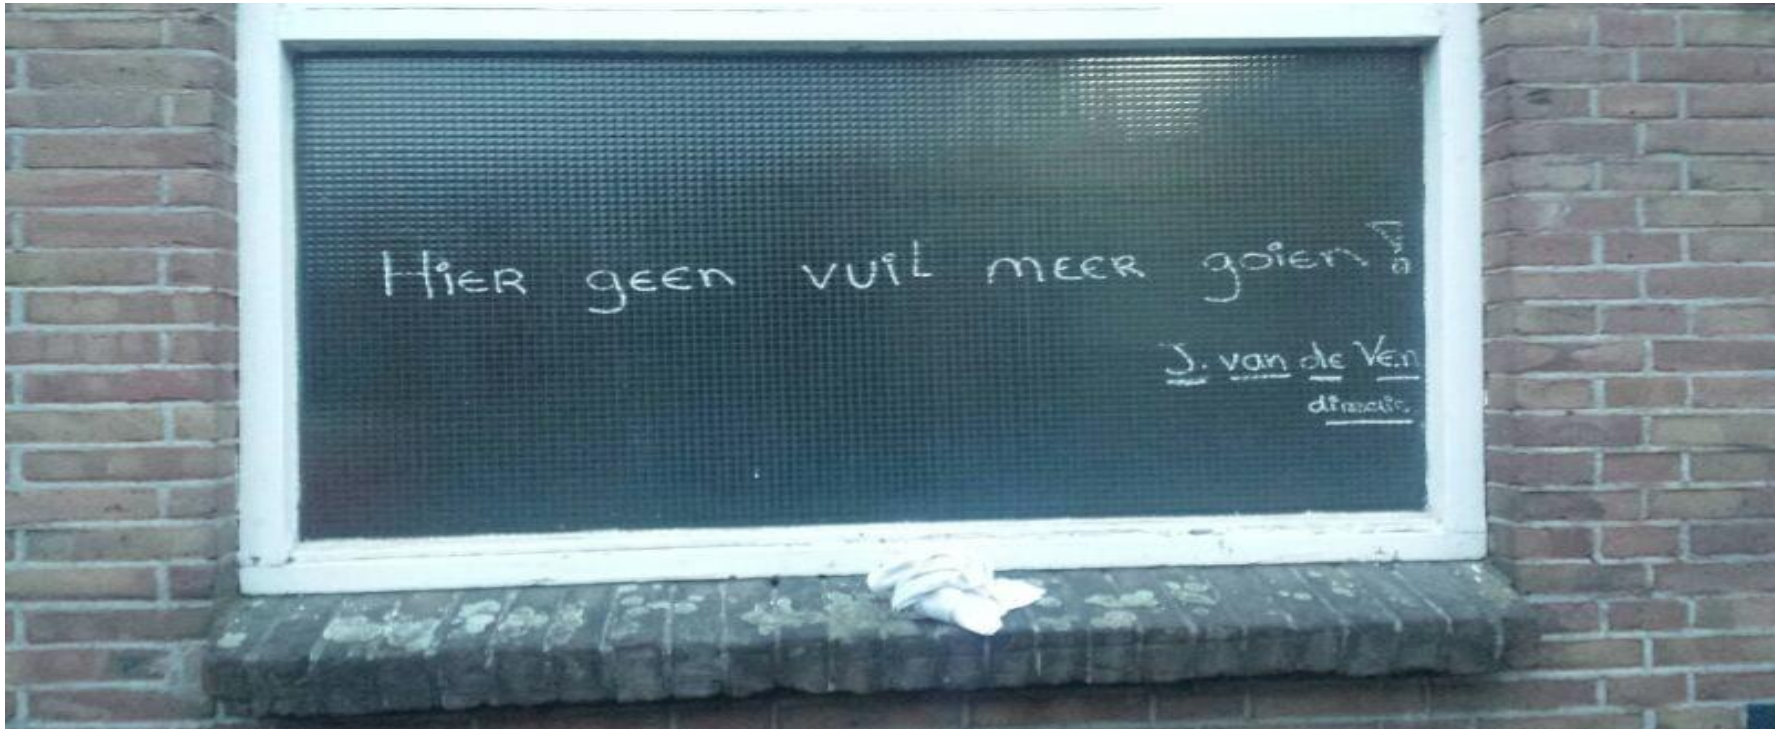 Hier geen vuil meer goien!
J. van de Ven
directie